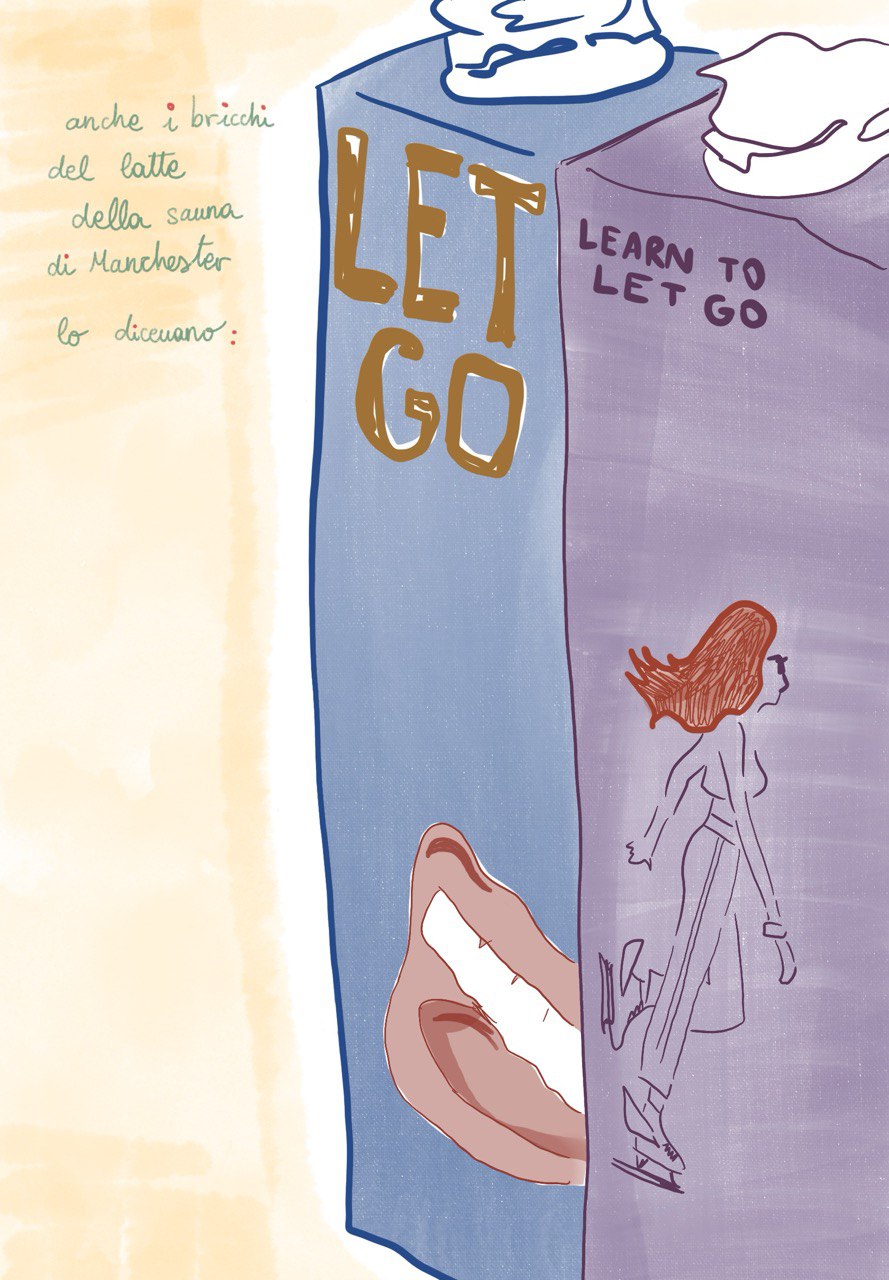 anche i bricchi
del latte
della sauna
di Manchester
lo dicevano:
LET
GO
LEARN TO
LET GO